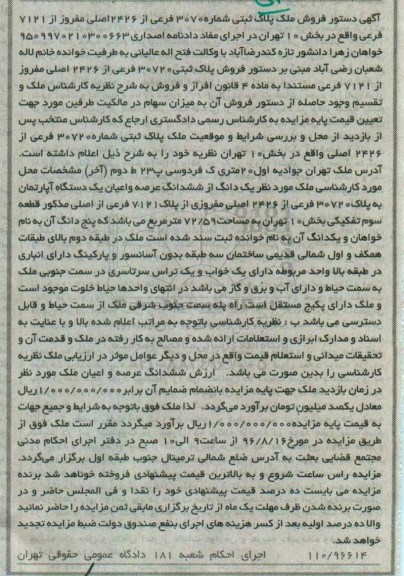 آگهی دستور فروش ملک پلاک ثبتی شماره۳۰۷۰ فرعی از ۲۴۲۶اصلی مفروز از ۷۱۲۱
فرعی واقع در بخش ۱۰ تهران در اجرای مفاد دادنامه اصداری۹۵۰۹۹۷۰۲۱۰۳۰۰۶۶۳
خواهان زهرا دانشور تازه کندرضاآباد با وکالت فتح اله عالیانی به طرفیت خوانده خانم لاله
شعبان رضی آباد مبنی بر دستور فروش پلاک ثبتی۳۰۷۲۰ فرعی از ۲۴۲۶ اصلی مفروز
از ۷۱۲۱ فرعی مستندا به ماده ۴ قانون افراز و فروش به شرح نظریه کارشناس ملک و
تقسیم وجود حاصله از دستور فروش آن به میزان سهام در مالکیت طرفین مورد جهت
تعیین قیمت پایه مزایده به کارشناس رسمی دادگستری ارجاع که کارشناس منتخب پس
از بازدید از محل و بررسی شرایط و موقعیت ملک پلاک ثبتی شماره۳۰۷۲۰ فرعی از
۲۴۲۶ اصلی واقع در بخش۱۰ تهران نظریه خود را به شرح ذیل اعلام داشته است.
آدرس ملک تهران جوادیه اول۲۰متری ک فردوسی پ۲۳ ط دوم (آخر) مشخصات محل
مورد کارشناسی ملک مورد نظر یک دانگ از ششدانگ عرصه واعیان یک دستگاه آپارتمان
به پلاک۳۰۷۲۰ فرعی از ۲۴۲۶ اصلی مفروزی از پلاک۷۱۲۱ فرعی از اصلی مذکور قطعه
سوم تفکیکی بخش۱۰ تهران به مساحت۷۲/۵۹ مترمربع می باشد که پنج دانگ آن به نام
خواهان و یکدانگ آن به نام خوانده ثبت سند شده است ملک در طبقه دوم بالای طبقات
همکف و اول شمالی قدیمی ساختمان سه طبقه بدون آسانسور و پارکینگ دارای انباری
در طبقه بالا واحد مربوطه دارای یک خواب و یک تراس سرتاسری در سمت جنوبی ملک
به سمت حیاط و دارای آب و برق و گاز می باشد در انتهای واحدها حیاط خلوت موجود است
و ملک دارای پکیج مستقل است راه پله سمت جنوب شرقی ملک از سمت حیاط و قابل
دسترسی می باشد ب : نظریه کارشناسی باتوجه به مراتب اعلام شده بالا و با عنایت به
اسناد و مدارک ابرازی و استعلامات ارائه شده و مصالح به کار رفته در ملک و قدمت آن و
تحقیقات میدانی و استعلام قیمت واقع در محل و دیگر عوامل موثر در ارزیابی ملک نظریه
کارشناسی را بدین صورت می باشد. ارزش ششدانگ عرصه و اعیان ملک مورد نظر
در زمان بازدید ملک جهت پایه مزایده بانضمام ضمایم آن برابر۱/۰۰۰/۰۰۰/۰۰۰ریال
معادل یکصد میلیون تومان برآورد می‌گردد. لذا ملک فوق باتوجه به شرایط و جمیع جهات
به قیمت پایه مزایده۱/۰۰۰/۰۰۰/۰۰۰ریال برآورد میگردد مقرر است ملک فوق از
طریق مزایده در مورخ۹۶/۸/۱۶ از ساعت۹ الی۱۰ صبح در دفتر اجرای احکام مدنی
مجتمع قضایی بعثت به آدرس ضلع شمالی ترمینال جنوب طبقه اول برگزار می‌گردد.
مزایده راس ساعت شروع و به بالاترین قیمت پیشنهادی فروخته خواهد شد برنده
مزایده می بایست ده درصد قیمت پیشنهادی خود را نقدا و فی المجلس حاضر و در
صورت برنده شدن ظرف مهلت یک ماه از تاریخ برگزاری مابقی ثمن مزایده را حاضر نمائید
والا ده درصد اولیه بعد از کسر هزینه های اجرای بنفع صندوق دولت ضبط مزایده تجدید
خواهد شد.
۱۱۰/۹۶۶۱۴ اجرای احکام شعبه ۱۸۱ دادگاه عمومی حقوقی تهران